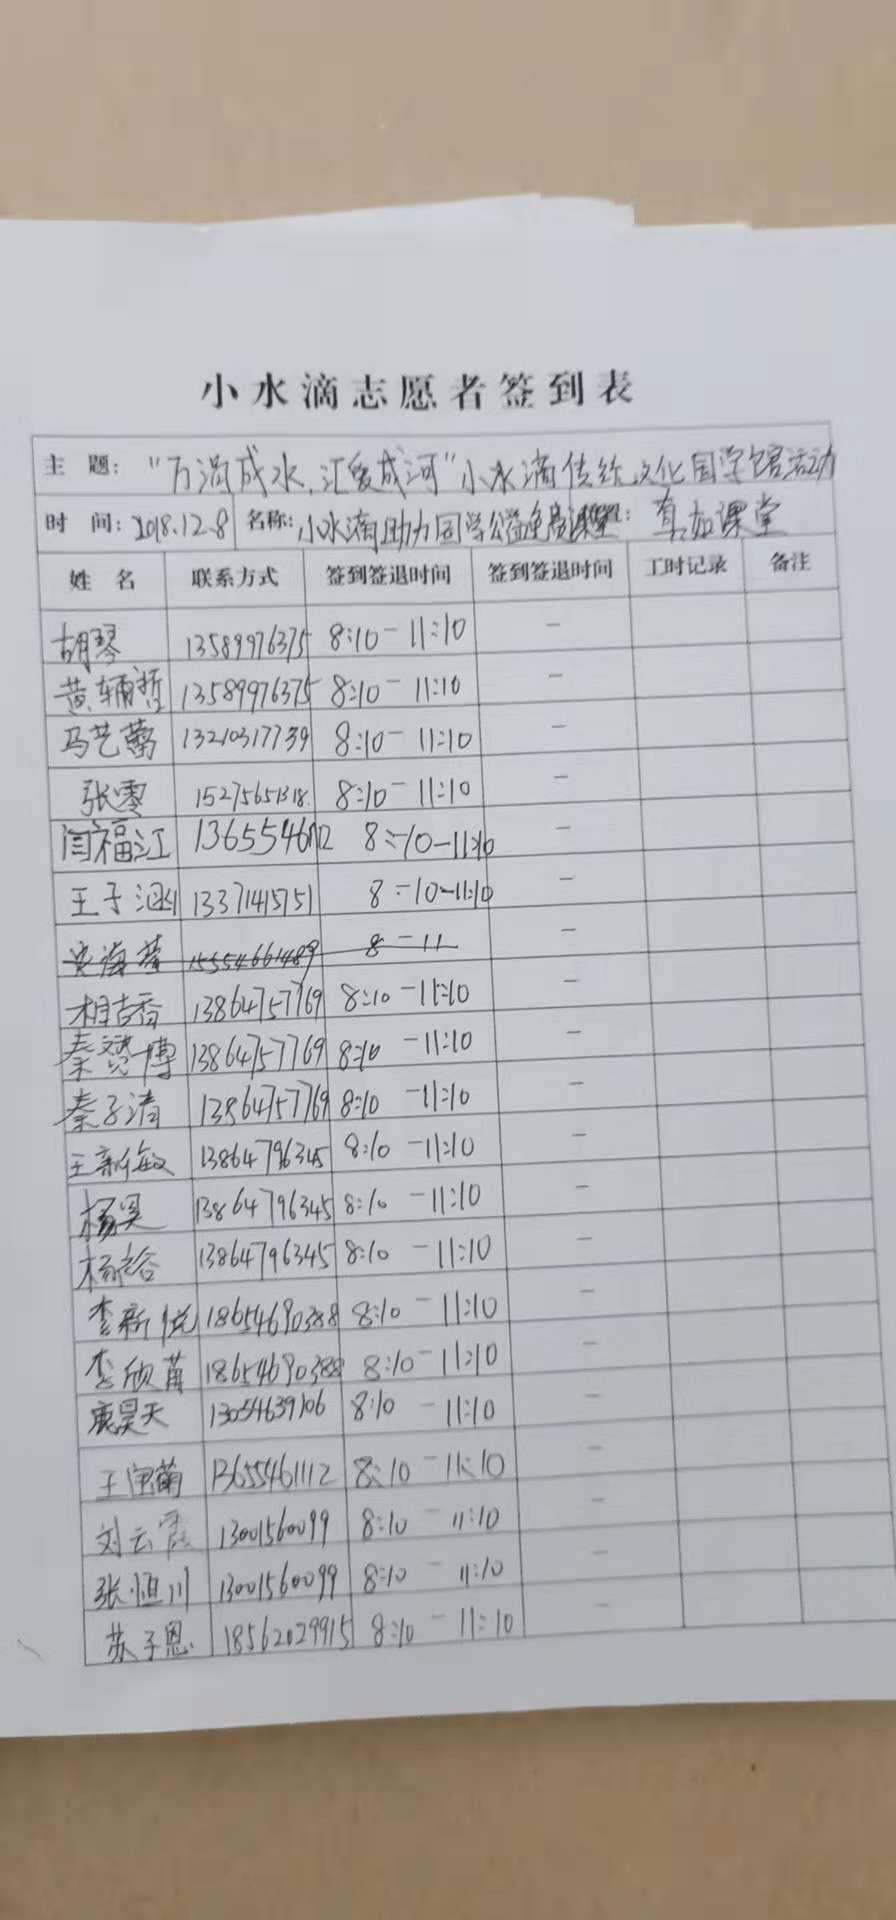 小水滴志愿者签到表
主 题: "万滴成水,汇爱成河"小水滴传统文化国学馆活动
时 间: 2018.12.8 名称: 小水滴助力国学公益 课堂 : 真如课堂
姓 名 联系方式 签到签退时间 签到签退时间 工时记录 备注
胡琴 13589976375 8:10-11:10 -
黄辅哲 13589976375 8:10-11:10 -
马艺蕾 13210317739 8:10-11:10 -
张零 15275651318 8:10-11:10 -
闫福江 8:10-11:10 -
王子涵 13371415751 8:10-11:10 -
15554661489 8-11 -
相吉香 13864757769 8:10-11:10 -
秦赟博 13864757769 8:10-11:10 -
秦子清 13864757769 8:10-11:10 -
王新敏 13864796345 8:10-11:10 -
杨昊 13864796345 8:10-11:10 -
杨裕 13864796345 8:10-11:10 -
李新悦 18654690388 8:10-11:10 -
李欣苒 18654690388 8:10-11:10 -
鹿昊天 13054639106 8:10-11:10 -
王宝菊 13655461112 8:10-11:10 -
刘云霞 13001560099 8:10-11:10 -
张恒川 13001560099 8:10-11:10 -
苏子恩 18562029915 8:10-11:10 -